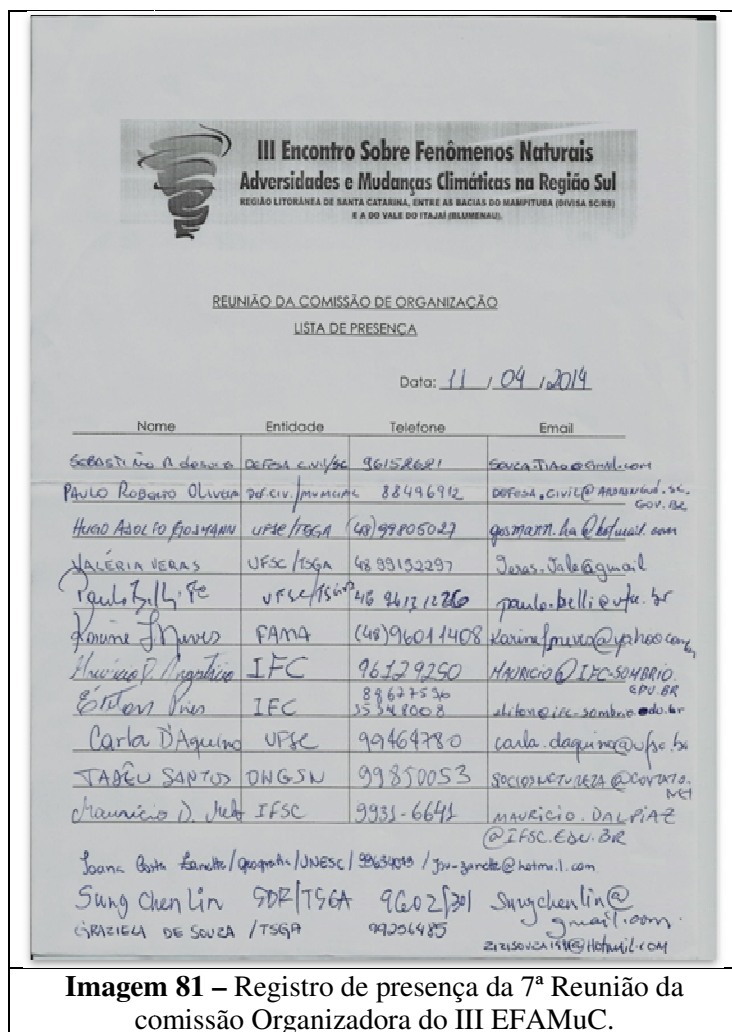 III Encontro Sobre Fenômenos Naturais
Adversidades e Mudanças Climáticas na Região Sul
REGIÃO LITORÂNEA DE SANTA CATARINA, ENTRE AS BACIAS DO MAMPITUBA (DIVISA SC/RS)
E A DO VALE DO ITAJAÍ (BLUMENAU).
REUNIÃO DA COMISSÃO DE ORGANIZAÇÃO
LISTA DE PRESENÇA
Data: 11 / 04 / 2014
Nome Entidade Telefone Email
SEBASTIÃO DEFESA CIVIL/SC 96152621
PAULO ROBERTO OLIVEIRA DEF.CIV./MUNICIPAL 88496912 DEFESA.CIVIL@ARARANGUÁ.SC.
GOV.BR
HUGO ADOLFO GOSMANN UFSC/TSGA (48) 99805027 gosmann.ha@hotmail.com
VALÉRIA VERAS UFSC/TSGA 48 99192297
UFSC/TSGA paulo.belli@ufsc.br
Karine FAMA (48) 96011408
IFC 96129250 MAURICIO@IFC-SOMBRIO.
EDU.BR
Éliton Pires IFC 35348008 eliton@ifc-sombrio.edu.br
Carla D'Aquino UFSC 99464780 carla.daquino@ufsc.br
TADEU SANTOS ONGSN 99850053
NET
Maurício D. IFSC 9931-6641 MAURICIO.DALPIAZ
@IFSC.EDU.BR
Joana /geografia/UNESC/ @hotmail.com
Sung Chen Lin SDR/TSGA Sungchenlin@
gmail.com
GRAZIELA DE SOUZA /TSGA 99256485
Imagem 81 – Registro de presença da 7ª Reunião da
comissão Organizadora do III EFAMuC.